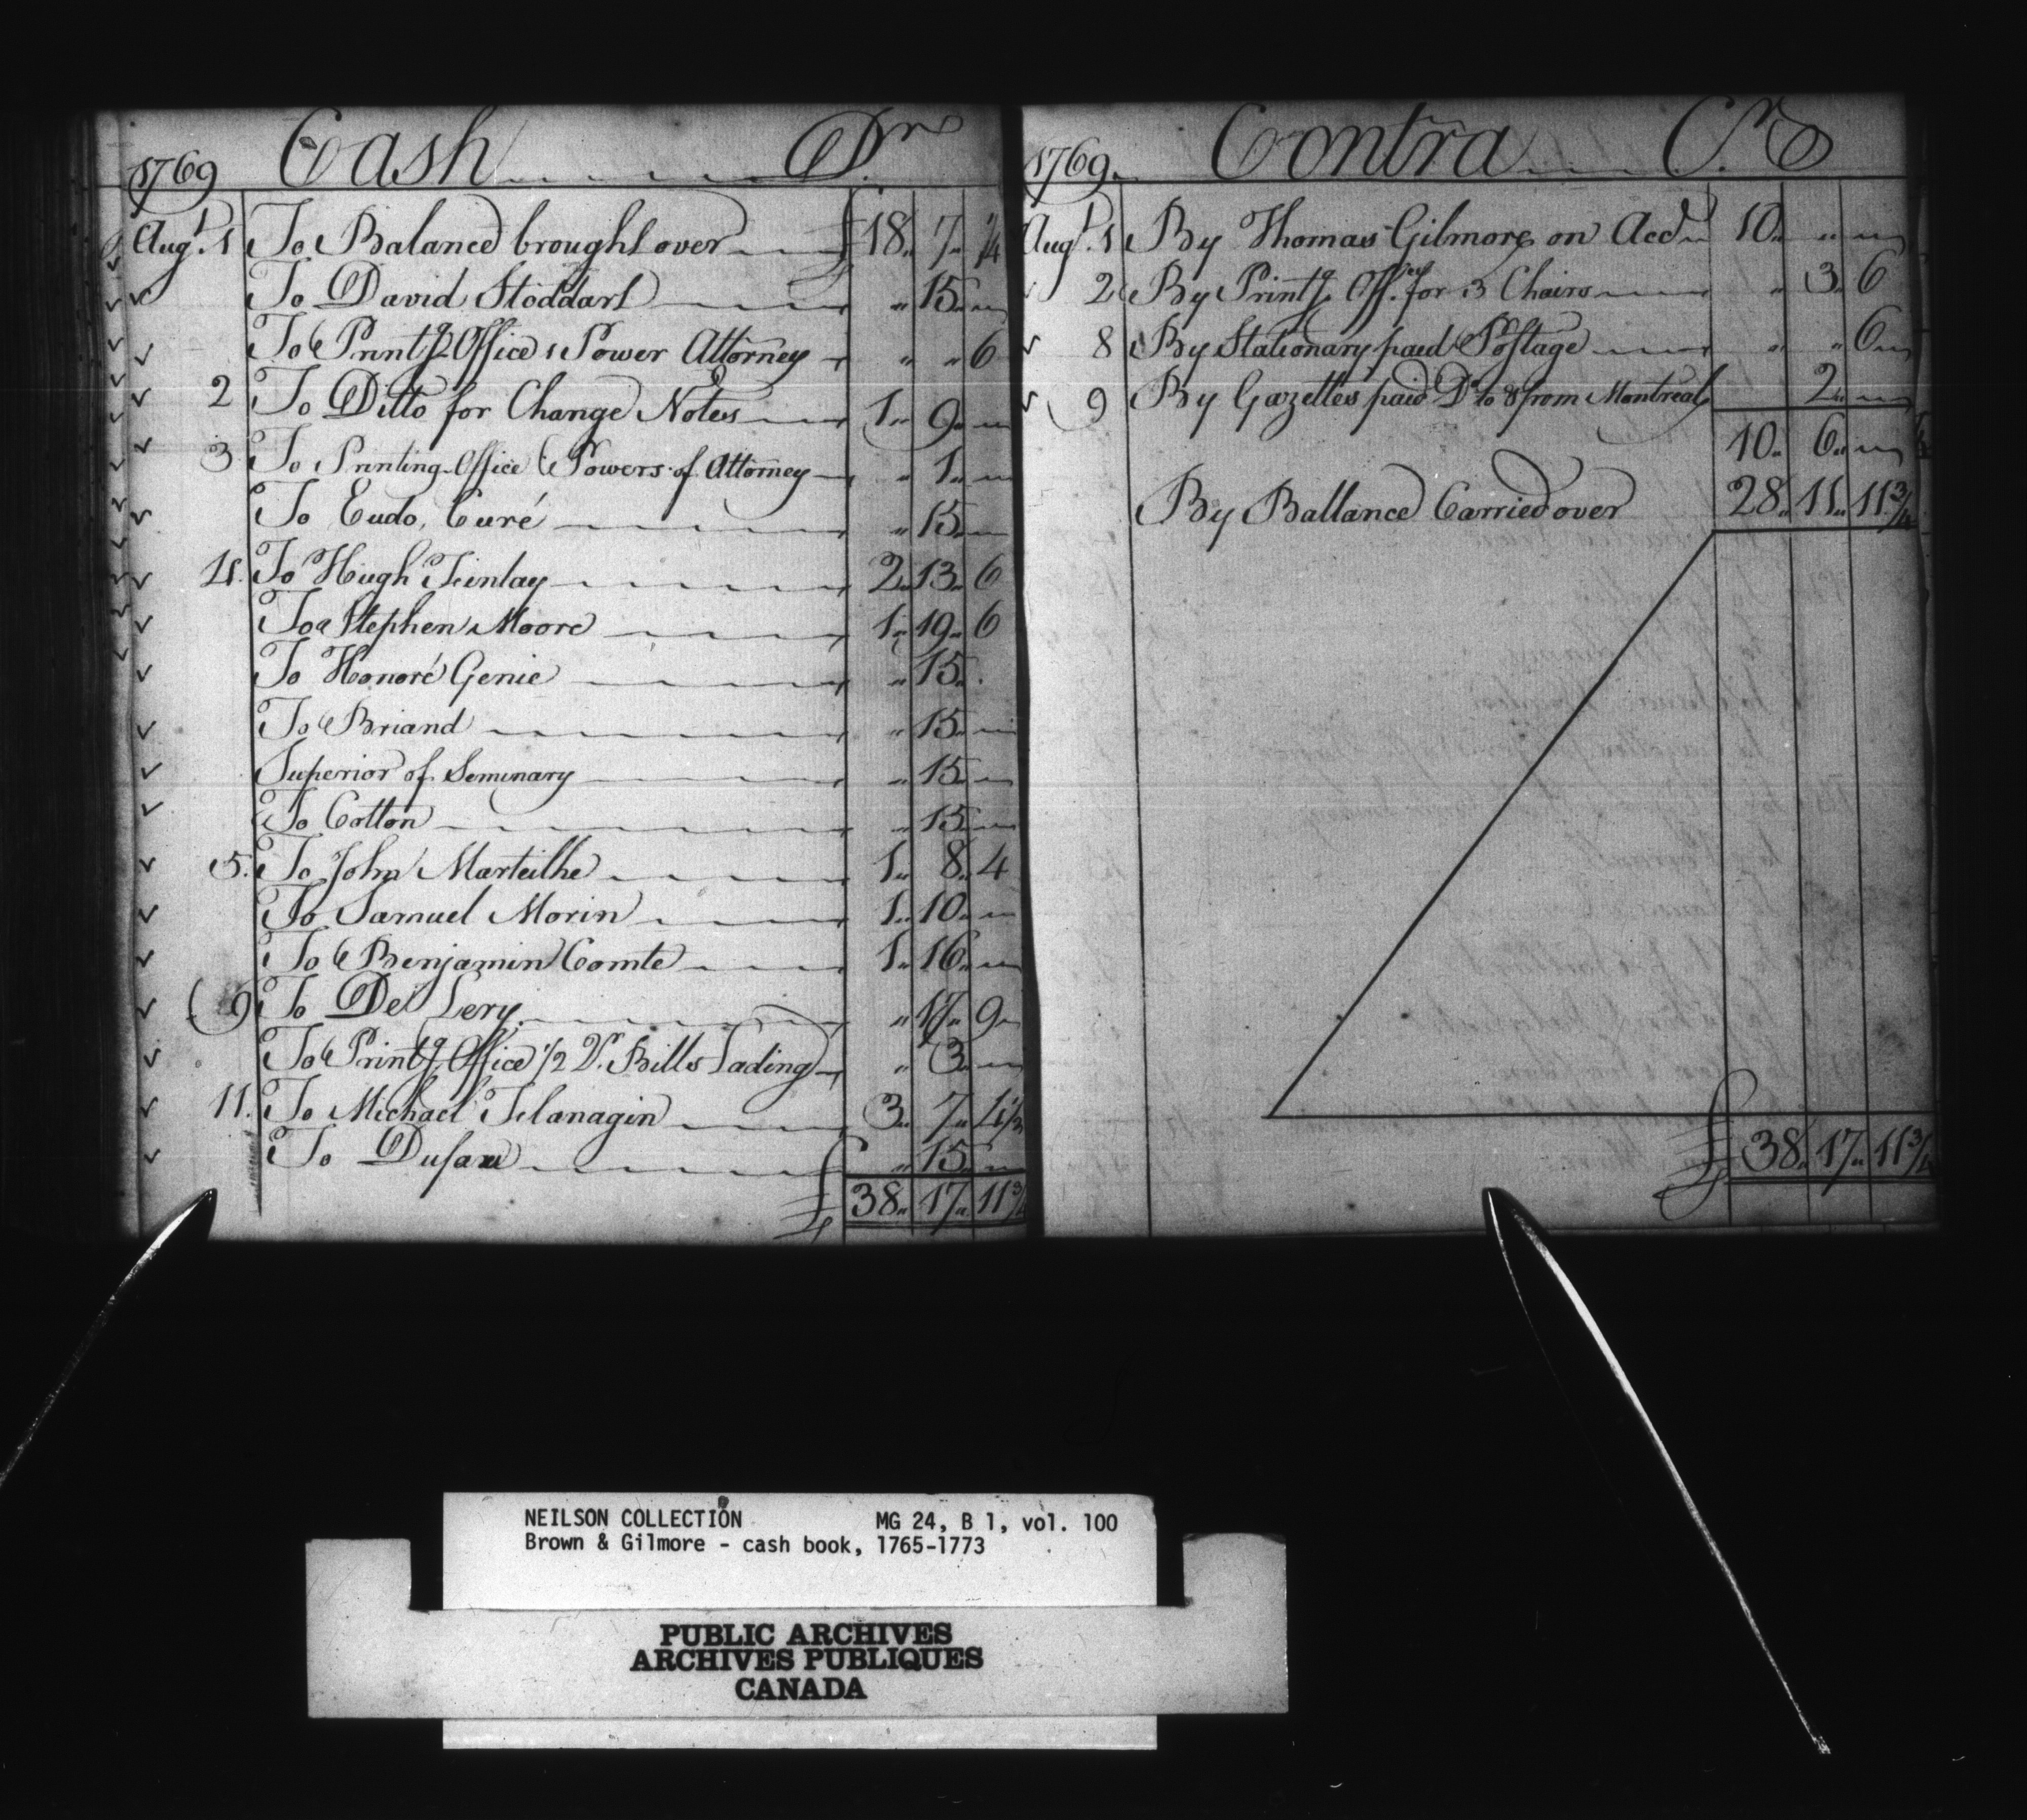 1769 Cash Dr
Augt. 1 To Balance brought over £ 18 " 7 " 1/4
To David Stoddart " 15 "
To Printg Office 1 Power Attorney " " 6
2 To Ditto for Change Notes 1 " 9 "
3 To Printing Office Powers of Attorney " 1 "
To Eudo, Curé " 15 "
4. To Hugh Finlay 2 " 13 " 6
To Stephen Moore 1 " 19 " 6
To Honoré Genie " 15 "
To Briand " 15 "
Superior of Seminary " 15 "
To Cotton " 15 "
5. To John Marteilhe 1 " 8 " 4
To Samuel Morin 1 " 10 "
To Benjamin Comte 1 " 16 "
9 To De Lery " 17 " 9
To Printg Office 1/2 Bills Lading " 3 "
11. To Michael Flanagin 3 " 7 " 4 1/2
To " 15 "
£ 38 " 17 " 11 3/4
1769. Contra Cr
Augt. 1 By Thomas Gilmore on Acct 10 " " "
2 By Printg Offce for 3 Chairs " 3 " 6
8 By Stationary paid Postage " " 6
9 By Gazettes paid Do to & from Montreal 2 "
10 " 6 "
By Ballance Carried over 28 " 11 " 11 3/4
£ 38 " 17 " 11 3/4
NEILSON COLLECTION MG 24, B 1, vol. 100
Brown & Gilmore - cash book, 1765-1773
PUBLIC ARCHIVES
ARCHIVES PUBLIQUES
CANADA